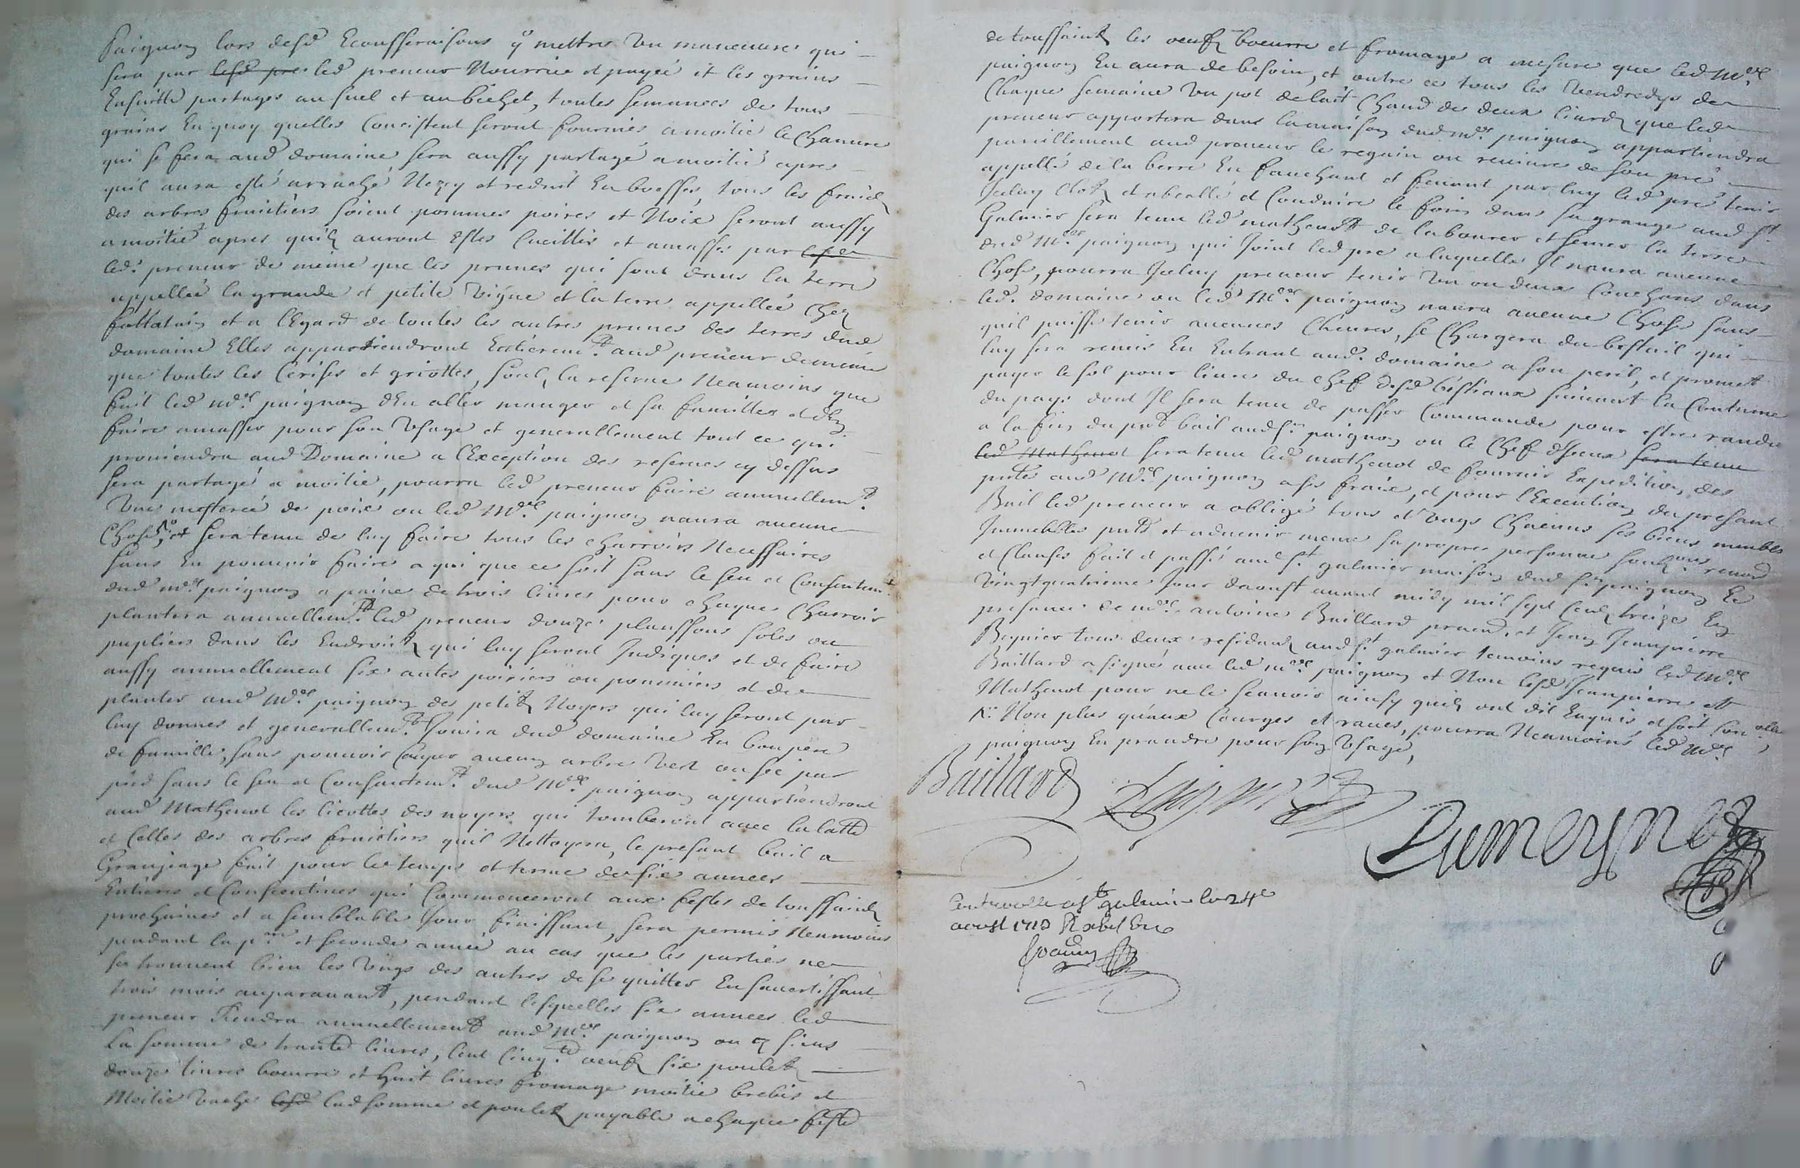 paignon lors desd Ecousseraisons y mettra un maneuvre qui
sera par lesd pre led preneur Nourrie et payée et les grains
Ensuitte partages au suel et au bichet, toutes semances de tous
grains En quoy quelles Consistent seront fournies a moitié le Chanvre
qui se fera aud domaine sera aussy partagé a moitié apres
quil aura esté arraché Nezy et reduit En bosses, tous les fruicts
des arbres fruictiers soient pommes poires et Noix seront aussy
a moitié apres quils auront estes Cueillis et amassés par lesd
led. preneur de meme que les prunes qui sont dans la terre
appellée la grande et petite Vigne et la terre appellée Chez
et a l'Egard de toutes les autres prunes des terres dud
domaine Elles appartiendront Entierem.t aud preneur de meme
que toutes les Cerises et griottes, sauf la reserve Neamoins que
fait led m.re paignon d'En aller manger et sa famille et d'En
faire amasser pour son Usage et generallement tout ce qui
proviendra aud Domaine a l'Exception des reserves cy dessus
sera partagé a moitié, pourra led preneur faire annuellem.t
Une mesterée de poix ou led M.re paignon naura aucune
Chose, et sera tenu de luy faire tous les charroirs Necessaires
sans En pouvoir faire a qui que ce soit sans le seu et Consentem.t
dud m.re paignon a paine de trois livres pour chaque Charroir
plantera annuellem.t led preneur douze plansons soles ou
pupliers dans les Endroits qui luy seront Indiqués et de faire
aussy annuellement six antes poiriers ou pommiers et de
planter aud M.re paignon des petits Noyers qui luy seront par
luy donnes et generallem.t Jouira dud domaine En bon pere
de famille, sans pouvoir Couper aucun arbre Vert ou sec par
pied sans le seu et Consantem.t dud M.re paignon appartiendront
aud Mathenot les liottes des noyers qui tomberont avec la latte
et Celles des arbres fruictiers quil Nettoyera, le present bail a
Granjeage fait pour le temps et terme de six années
Entieres et Consecutives qui Commenceront aux festes de toussaints
prochaines et a semblable Jour finissant, sera permis Neamoins
pendant la p.re et seconde année au cas que les parties ne
se trouvent bien les Uns des autres de se quitter En savertissant
trois mois auparavant, pendant lesquelles six annees led
preneur Rendra annuellement aud M.re paignon ou es siens
la somme de trante livres, Cent Cinq.te oeufs six poulets
douze livres beurre et huit livres fromage moitié brebis et
Moitié Vache lesd lad somme et poulets payable a chaque feste
de toussaints les oeufs beurre et fromage a mesure que led M.re
paignon En aura de besoin, et outre ce tous les Vendredys de
Chaque semaine Un pot de lait Chaud de deux liards que led
preneur apportera dans la maison dud m.re paignon appartiendra
pareillement aud preneur le regain ou revivre de son pré
appellé de la berre En fauchant et fenant par luy led pré tenir
Iceluy Clos et abeallé et Conduire le foin dans sa grange aud St
Galmier sera tenu led mathenot de labourer et semer la terre
dud M.re paignon qui Joint led pre a laquelle Il naura aucune
Chose, pourra Iceluy preneur tenir Un ou deux Couchons dans
led. domaine ou led M.re paignon naura aucune Chose sans
quil puisse tenir aucunes Chevres, se Chargera du bestail qui
luy sera remis En Entrant aud. domaine a son peril, et promet
payer le sol pour livre du chef desd bestiaux suivant la Coutume
du pays dont Il sera tenu de passer Commande pour estre randu
a la fin du pnt bail aud s.r paignon ou le Chef d'Iceux sera tenu
led Mathenot sera tenu led mathenot de fournir Expedition des
pntes aud M.re paignon a ses fraix, et pour l'Execution du present
Bail led preneur a obligé tous et Ungs Chacuns ses biens meubles
Immebles pnts et advenir meme sa propre personne
et Clauses fait et passé aud St galmier maison dud s.r paignon le
vingtquatrieme Jour daoust avant midy mil sept Cent treize En
presence de m.re antoine Baillard et Jean Jeanpierre
tous deux residents aud St galmier temoins requis led M.re
Baillard a signé avec led m.re paignon et Non lesd Jeanpierre et
Mathenot pour ne le scavoir ainsy quils ont dit Enquis et
Non plus quaux Courges et raves, pourra Neamoins led M.re
paignon En prandre pour son Usage,
Baillard
Paignon
Dumoyne
Controllé a St galmier le 24e
aoust 1713